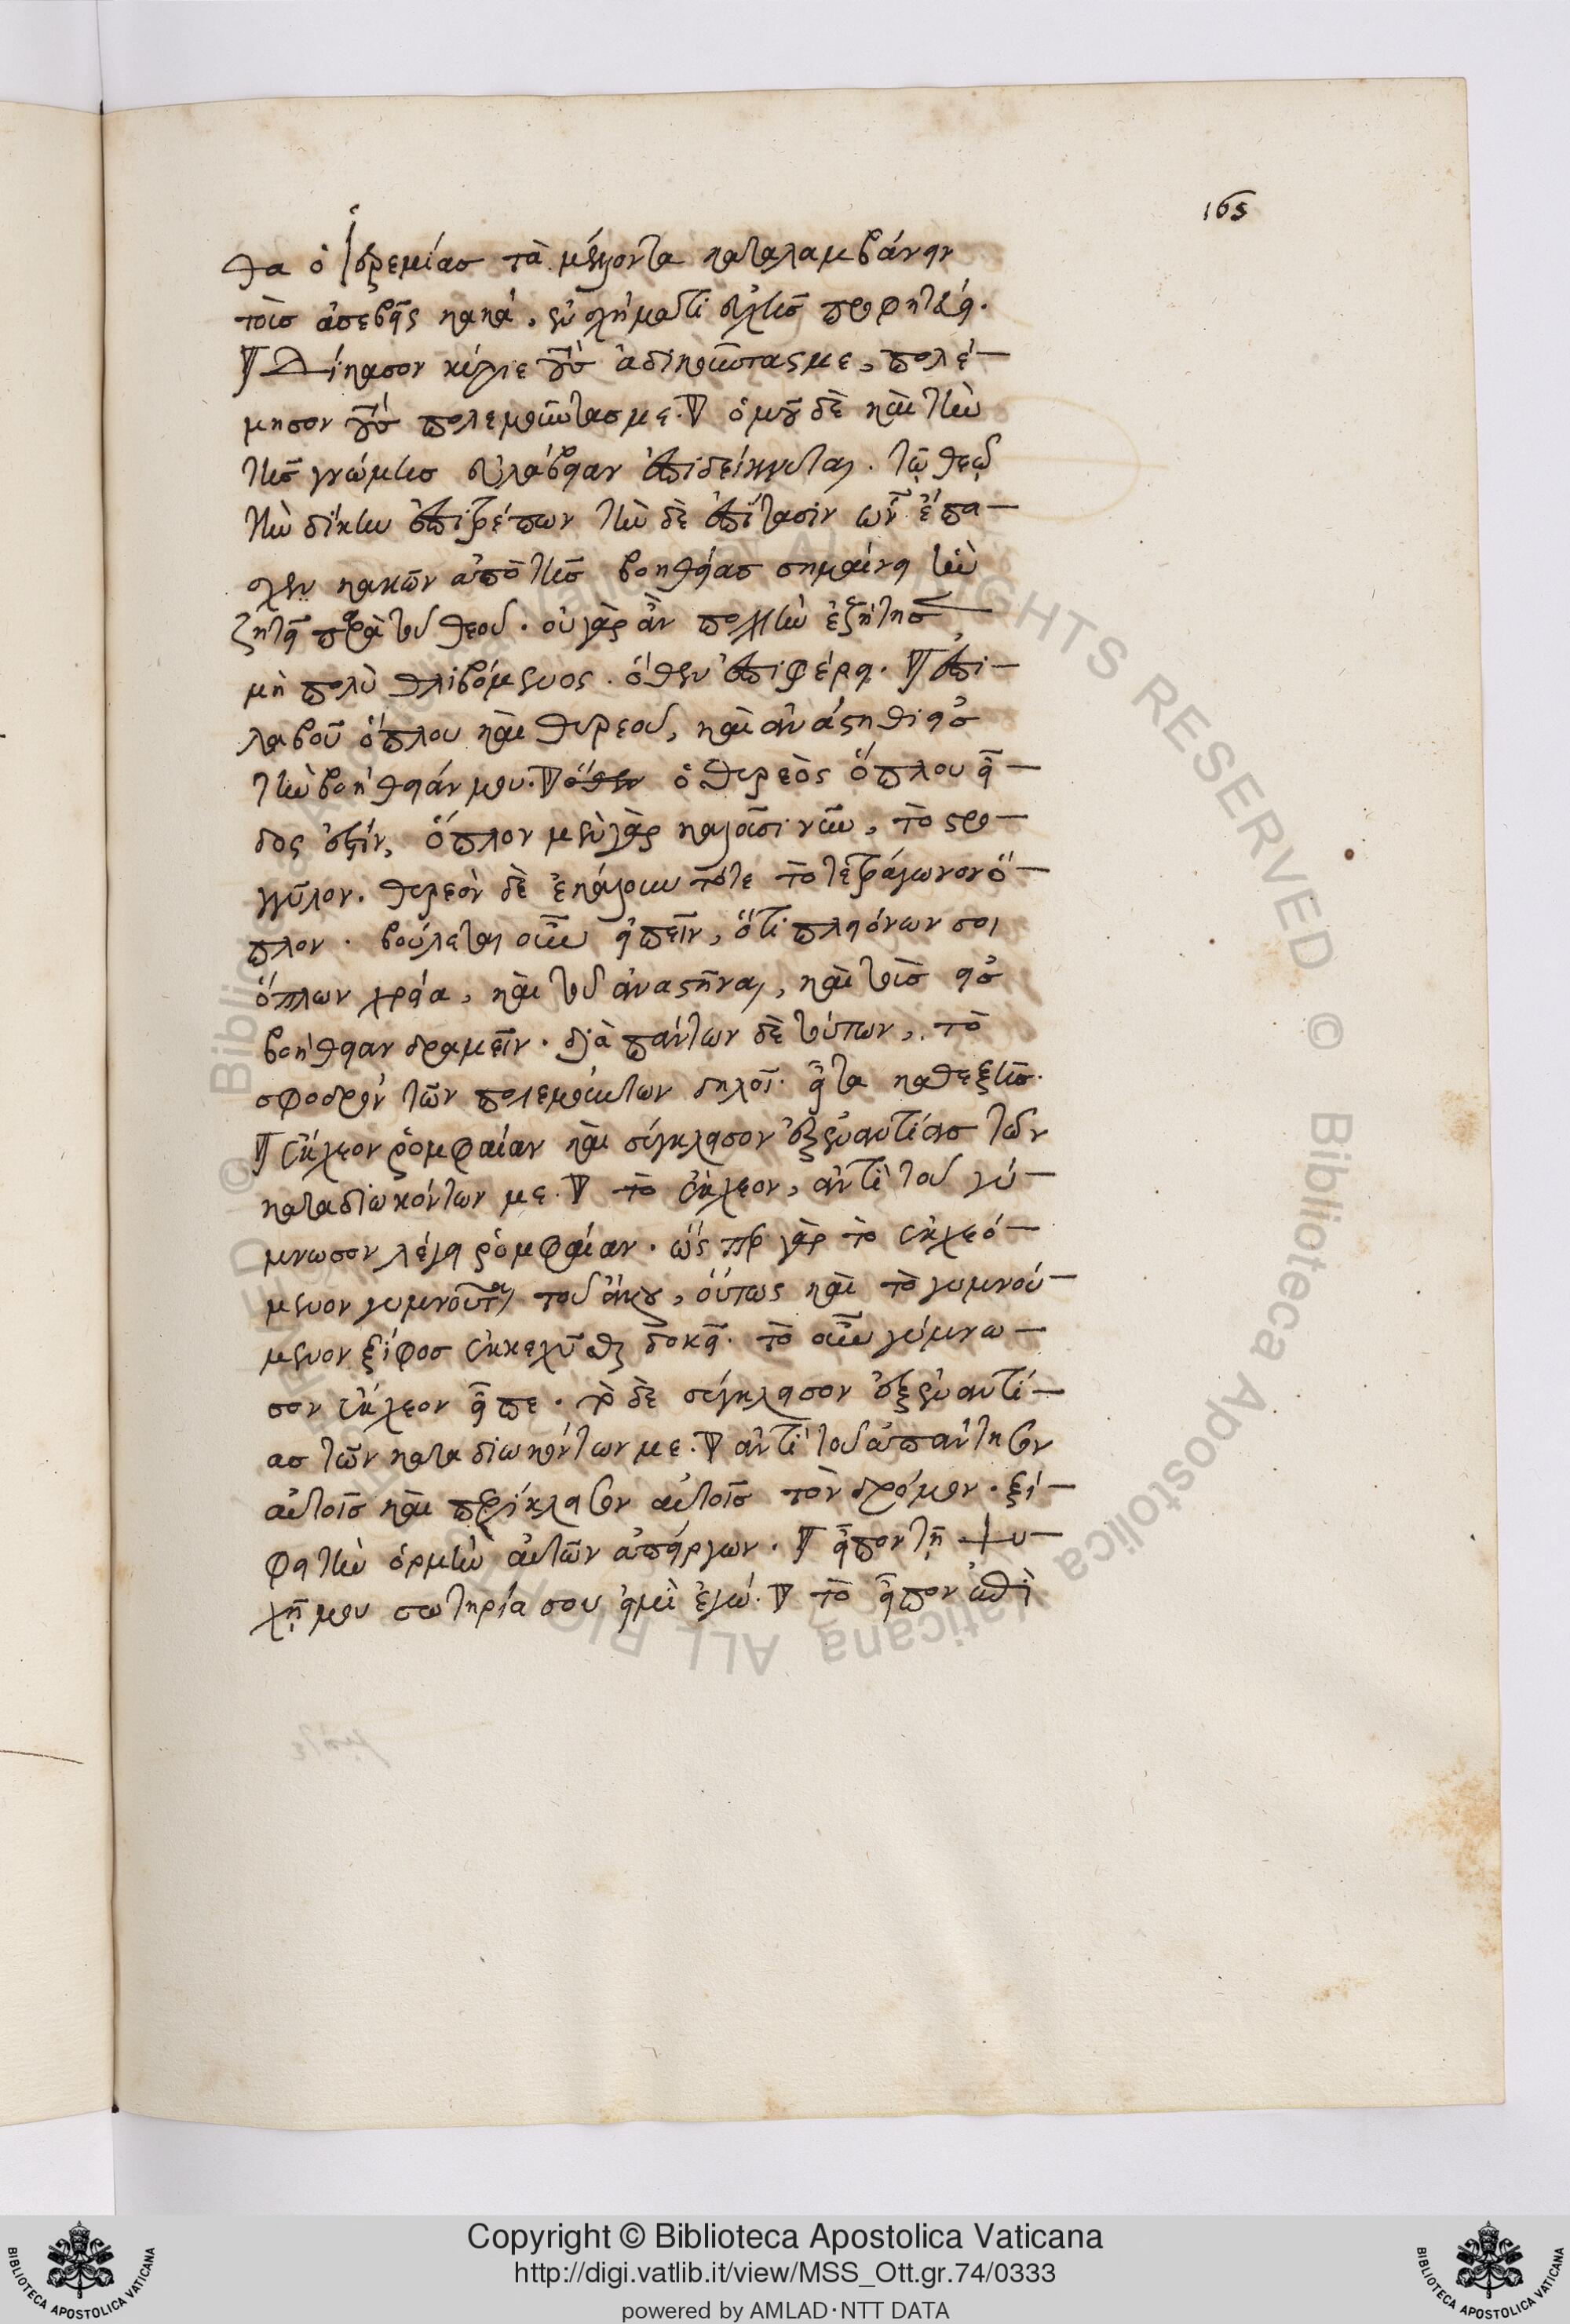 165
θα ὁ Ἱερεμίας τὰ μέλλοντα καταλαμβάνειν
τοὺς ἀσεβεῖς κακά, ἐν σχήματι εὐχῆς προφητεύει.
Δίκασον κύριε τοὺς ἀδικοῦντάς με, πολέ-
μησον τοὺς πολεμοῦντας με. ὁμοῦ δὲ καὶ τὴν
τῆς γνώμης εὐλάβειαν ἐπιδείκνυται. τῷ θεῷ
τὴν δίκην ἐπιτρέπων τὴν δὲ ἐπίτασιν ὧν ἔπα-
σχεν κακῶν ἀπὸ τῆς βοηθείας σημαίνει ἣν
ζητεῖ παρὰ τοῦ θεοῦ. οὐ γὰρ ἂν πολλὴν ἐζήτησε
μὴ πολὺ θλιβόμενος. ὅθεν ἐπιφέρει. ἐπι-
λαβοῦ ὅπλου καὶ θυρεοῦ, καὶ ἀνάστηθι εἰς
τὴν βοήθειάν μου. ὁ θυρεὸς ὅπλου εἶ-
δος ἐστίν, ὅπλον μὲν γὰρ καλοῦσι νῦν, τὸ στρο-
γγύλον. θυρεὸν δὲ ἐκάλουν τότε τὸ τετράγωνον ὅ-
πλον. βούλεται οὖν εἰπεῖν, ὅτι πλειόνων σοι
ὅπλων χρεία, καὶ τοῦ ἀναστῆναι, καὶ τοῖς εἰς
βοήθειαν δραμεῖν. διὰ πάντων δὲ τούτων, τὸ
σφοδρὸν τῶν πολεμούντων δηλοῖ. εἶτα καθεξῆς.
ἔκχεον ῥομφαίαν καὶ σύγκλεισον ἐξ ἐναντίας τῶν
καταδιωκόντων με. τὸ ἔκχεον, ἀντὶ τοῦ γύ-
μνωσον λέγει ῥομφαίαν. ὥσπερ γὰρ τὸ ἐκχεό-
μενον γυμνοῦται τοῦ ἄγγους, οὕτως καὶ τὸ γυμνού-
μενον ξίφος ἐκκεχύσθαι δοκεῖ. τὸ οὖν γύμνω-
σον ἔκχεον εἶπε. τὸ δὲ σύγκλεισον ἐξ ἐναντί-
ας τῶν καταδιωκόντων με. ἀντὶ τοῦ ἀπάντησον
αὐτοῖς καὶ περίκλεισον αὐτοῖς τὸν δρόμον. ξί-
φει τὴν ὁρμὴν αὐτῶν ἀπείργων. εἶπον τῇ ψυ-
χῇ μου σωτηρία σου εἰμὶ ἐγώ. τὸ εἶπον ἀντὶ
Copyright © Biblioteca Apostolica Vaticana
http://digi.vatlib.it/view/MSS_Ott.gr.74/0333
powered by AMLAD·NTT DATA